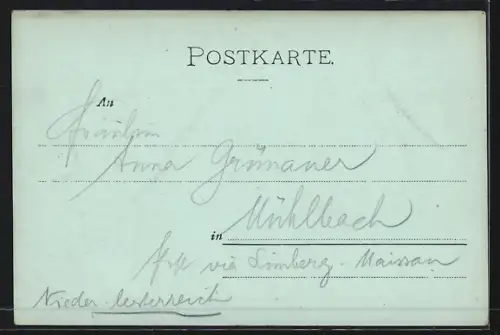 POSTKARTE.
An
Fräulein
Anna Grünauer
in Mühlbach
Post via Limberg-Maissau
Nieder-Oesterreich